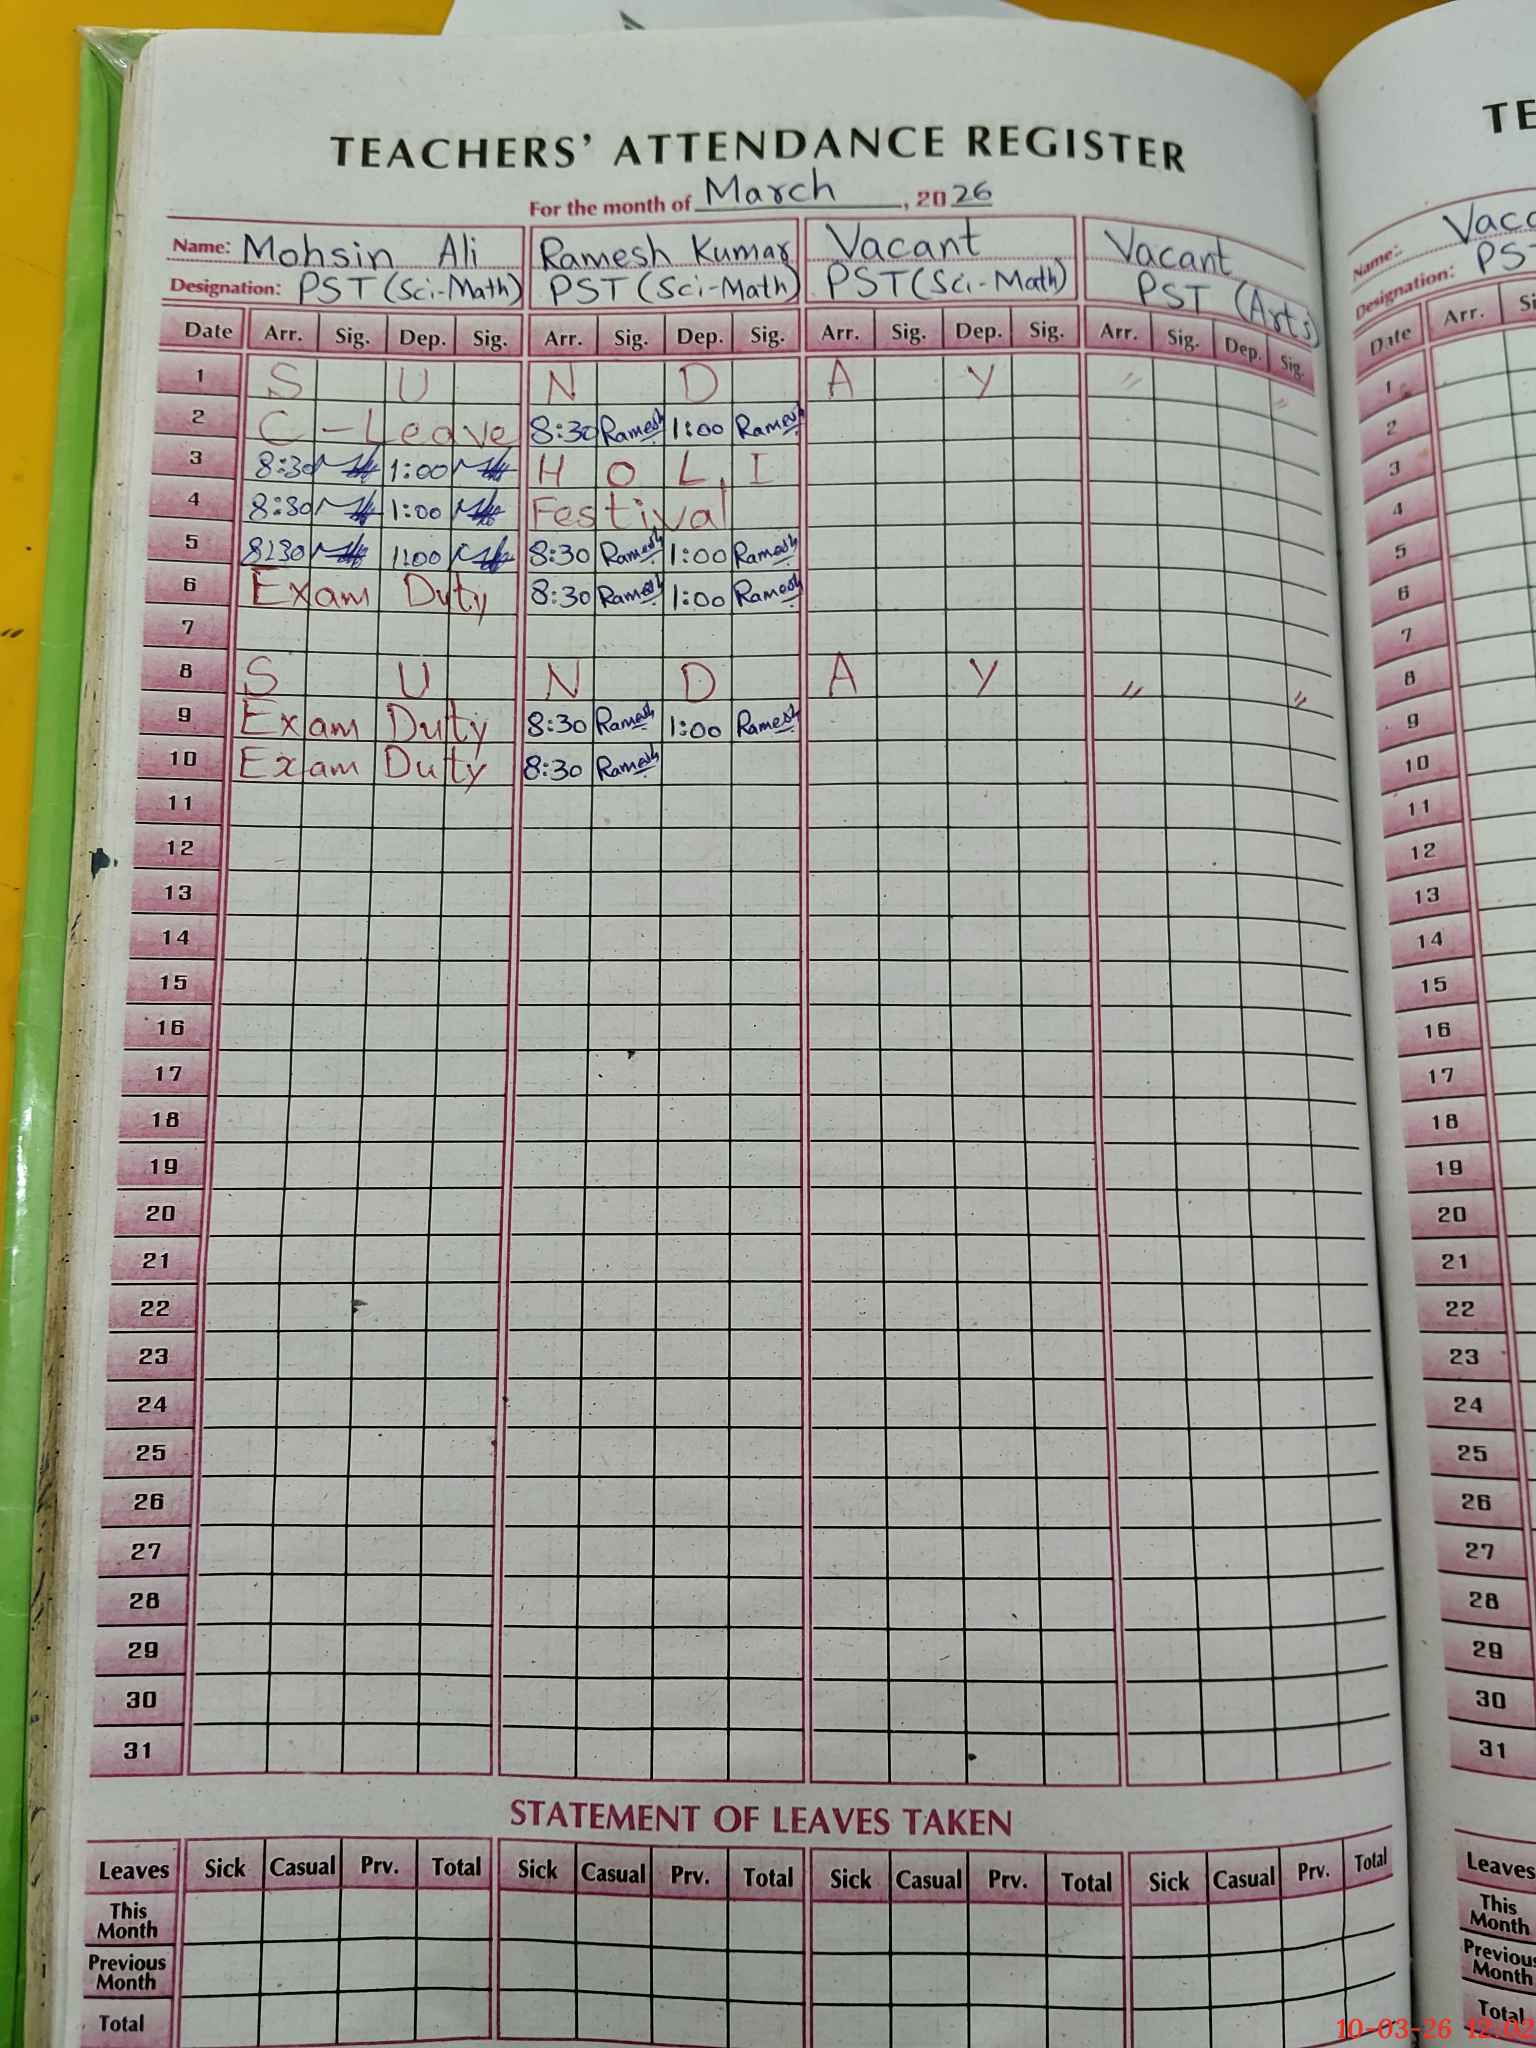 TEACHERS' ATTENDANCE REGISTER
For the month of March, 2026
Name: Mohsin Ali Ramesh Kumar Vacant Vacant
Designation: PST (Sci-Math) PST (Sci-Math) PST (Sci-Math) PST (Arts)
Date Arr. Sig. Dep. Sig. Arr. Sig. Dep. Sig. Arr. Sig. Dep. Sig. Arr. Sig. Dep. Sig.
1 S U N D A Y " "
2 C-Leave 8:30 Ramesh 1:00 Ramesh
3 8:30 1:00 H O L I
4 8:30 1:00 Festival
5 8:30 1:00 8:30 Ramesh 1:00 Ramesh
6 Exam Duty 8:30 Ramesh 1:00 Ramesh
7
8 S U N D A Y " "
9 Exam Duty 8:30 Ramesh 1:00 Ramesh
10 Exam Duty 8:30 Ramesh
11
12
13
14
15
16
17
18
19
20
21
22
23
24
25
26
27
28
29
30
31
STATEMENT OF LEAVES TAKEN
Leaves Sick Casual Prv. Total Sick Casual Prv. Total Sick Casual Prv. Total Sick Casual Prv. Total
This Month
Previous Month
Total
TE
Name: Vaca
Designation: PS
Date Arr. Si
1
2
3
4
5
6
7
8
9
10
11
12
13
14
15
16
17
18
19
20
21
22
23
24
25
26
27
28
29
30
31
Leaves
This Month
Previous Month
Total
10-03-26 12:02